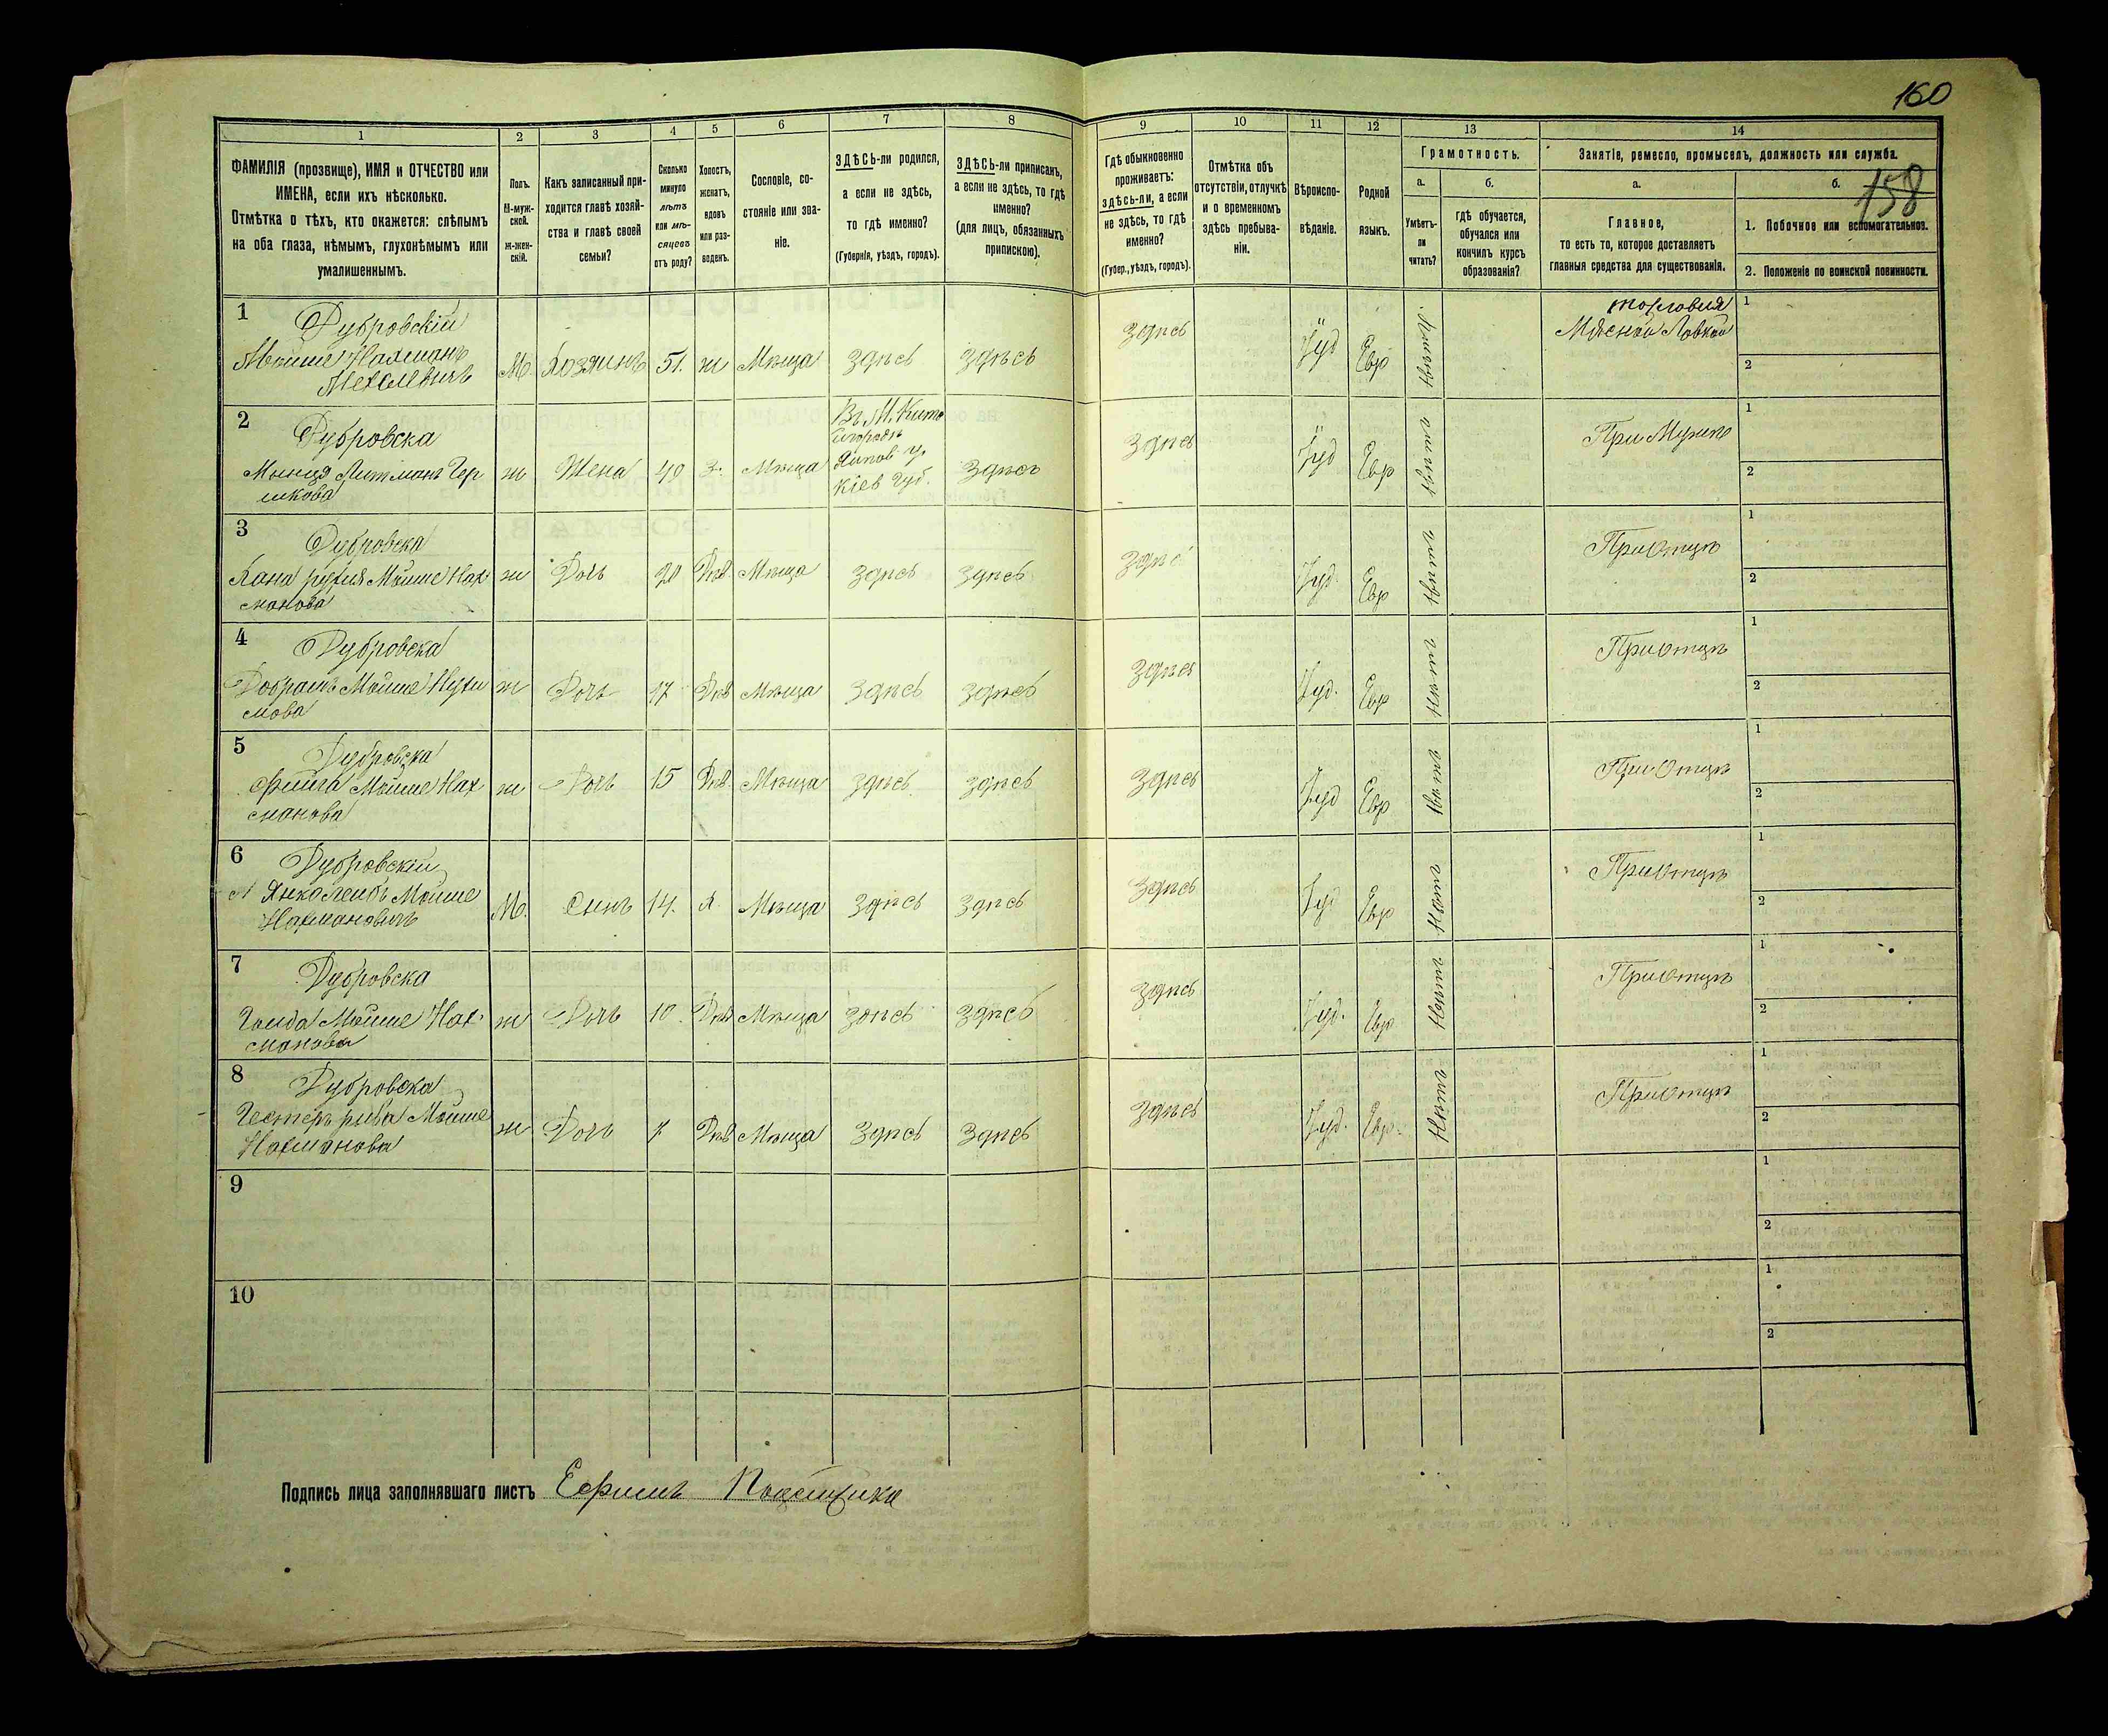 160
158
1
2
3
4
5
6
7
8
9
10
11
12
13
14
ФАМИЛІЯ (прозвище), ИМЯ и ОТЧЕСТВО или
ИМЕНА, если ихъ нѣсколько.
Отмѣтка о тѣхъ, кто окажется: слѣпымъ
на оба глаза, нѣмымъ, глухонѣмымъ или
умалишеннымъ.
Полъ.
М-муж-
ской.
Ж-жен-
скій.
Какъ записанный при-
ходится главѣ хозяй-
ства и главѣ своей
семьи?
Сколько
минуло
лѣтъ
или мѣ-
сяцевъ
отъ роду?
Холостъ,
женатъ,
вдовъ
или раз-
веденъ.
Сословіе, со-
стояніе или зва-
ніе.
ЗДѢСЬ-ли родился,
а если не здѣсь,
то гдѣ именно?
(Губернія, уѣздъ, городъ).
ЗДѢСЬ-ли приписанъ,
а если не здѣсь, то гдѣ
именно?
(для лицъ, обязанныхъ
припискою).
Гдѣ обыкновенно
проживаетъ:
здѣсь-ли, а если
не здѣсь, то гдѣ
именно?
(Губер., уѣздъ, городъ).
Отмѣтка объ
отсутствіи, отлучкѣ
и о временномъ
здѣсь пребыва-
ніи.
Вѣроиспо-
вѣданіе.
Родной
языкъ.
Грамотность.
а.
Умѣетъ-
ли
читать?
б.
гдѣ обучается,
обучался или
кончилъ курсъ
образованія?
Занятіе, ремесло, промыселъ, должность или служба.
а.
Главное,
то есть то, которое доставляетъ
главныя средства для существованія.
б.
1. Побочное или вспомогательное.
2. Положеніе по воинской повинности.
1
Дубровскій
Мойше Нахманъ
Мехелевичъ
М. Хозяинъ 51. ж Мѣща здѣсь здѣсь
здѣсь Іуд Евр
торговля
Мясной Лавкой
1
2
2
Дубровска
Литманъ Гер
шкова
ж Жена 49 З. Мѣща
Въ М. Кита
городѣ
Липов у.
Кіев губ.
здѣсь
здѣсь Іуд Евр
При Мужѣ
1
2
3
Дубровска
Хана Мойше Нах
манова
ж Дочь 20 Дѣв. Мѣща здѣсь здѣсь
здѣс Іуд. Евр
При Отцѣ
1
2
4
Дубровска
Мойше
мова
ж Дочь 17 Дѣв Мѣща здѣсь здѣсь
здѣсь Іуд. Евр
При Отцѣ
1
2
5
Дубровска
Фейга Мойше Нах
манова
ж Дочь 15 Дѣв. Мѣща здѣсь здѣсь
здѣсь Іуд Евр
При Отцѣ
1
2
6
Дубровскій
Янкалейбъ Мойше
Нахмановичъ
М. Сынъ 14. Х. Мѣща здѣсь здѣсь
здѣсь Іуд Евр
При Отцѣ
1
2
7
Дубровска
Голда Мойше Нах
манова
ж Дочь 10. Дѣв Мѣща здѣсь здѣсь
здѣсь Іуд. Евр
При Отцѣ
1
2
8
Дубровска
рива Мойше
Нахманова
ж Дочь Дѣв Мѣща здѣсь здѣсь
здѣсь Іуд. Евр.
При Отцѣ
1
2
9
1
2
10
1
2
Подпись лица заполнявшаго листъ Ефимъ